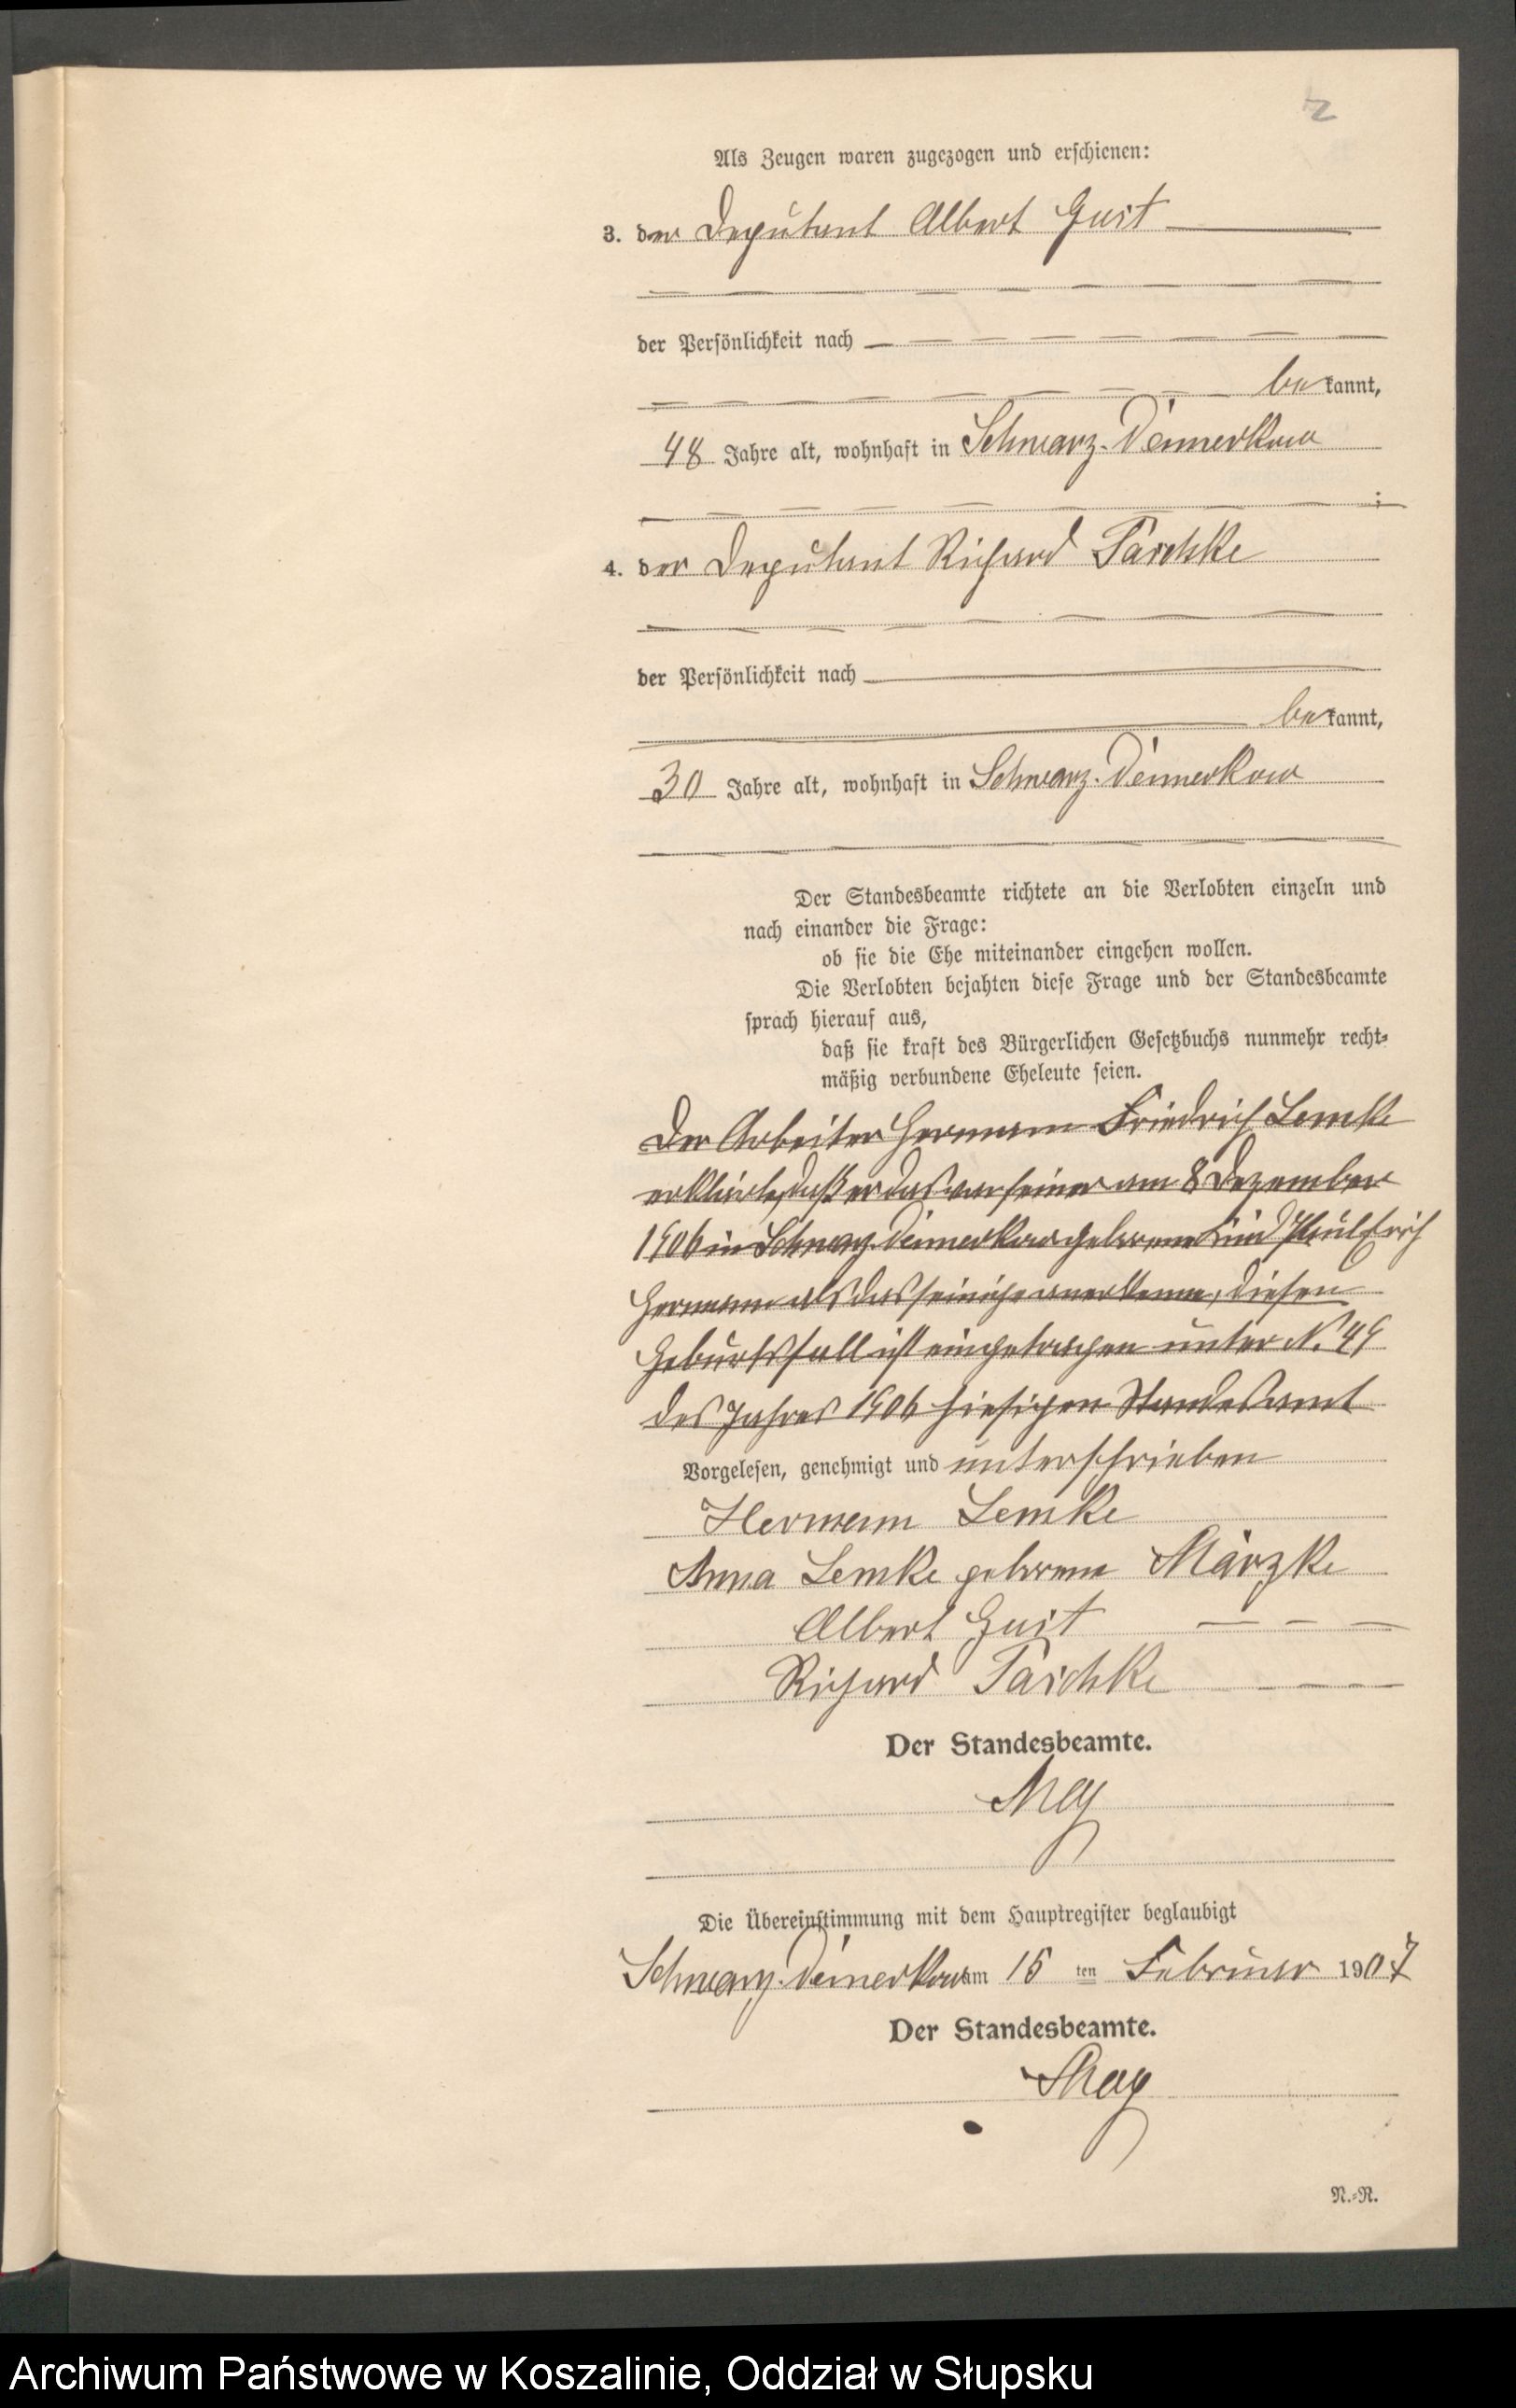 2
Als Zeugen waren zugezogen und erschienen:
3. der Deputant Albert Gust
der Persönlichkeit nach
be kannt,
48 Jahre alt, wohnhaft in Schwarz-Damerkow
;
4. der Deputant Richard Paschke
der Persönlichkeit nach
be kannt,
30 Jahre alt, wohnhaft in Schwarz-Damerkow
Der Standesbeamte richtete an die Verlobten einzeln und
nach einander die Frage:
ob sie die Ehe miteinander eingehen wollen.
Die Verlobten bejahten diese Frage und der Standesbeamte
sprach hierauf aus,
daß sie kraft des Bürgerlichen Gesetzbuchs nunmehr recht-
mäßig verbundene Eheleute seien.
Der Arbeiter Hermann Friedrich Lemke
erklärte, daß er das von seiner am 8 Dezember
1906 in Schwarz-Damerkow geborene Kind Paul Erich
Hermann als das seinige anerkenne, diesen
Geburtsfall ist eingetragen unter N. 49
des Jahres 1906 hiesigen Standesamt
Vorgelesen, genehmigt und unterschrieben
Hermann Lemke
Anna Lemke geborene Märzke
Albert Gust
Richard Paschke
Der Standesbeamte.
May
Die Übereinstimmung mit dem Hauptregister beglaubigt
Schwarz-Damerkow am 15 ten Februar 1907
Der Standesbeamte.
May
N.-R.
Archiwum Państwowe w Koszalinie, Oddział w Słupsku